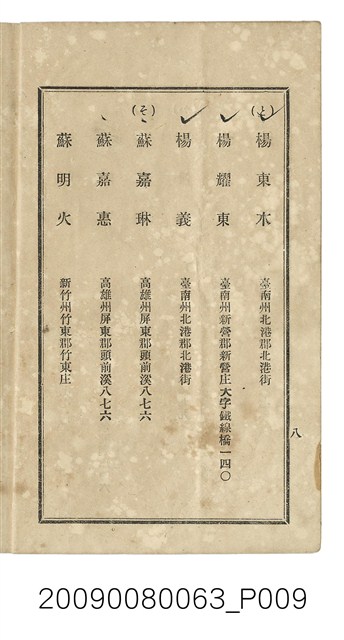 (と)
楊東木 臺南州北港郡北港街
楊耀東 臺南州新營郡新營庄大字鐵線橋一四〇
楊義 臺南州北港郡北港街
(そ)
蘇嘉琳 高雄州屏東郡頭前溪八七六
蘇嘉惠 高雄州屏東郡頭前溪八七六
蘇明火 新竹州竹東郡竹東庄
八
20090080063_P009